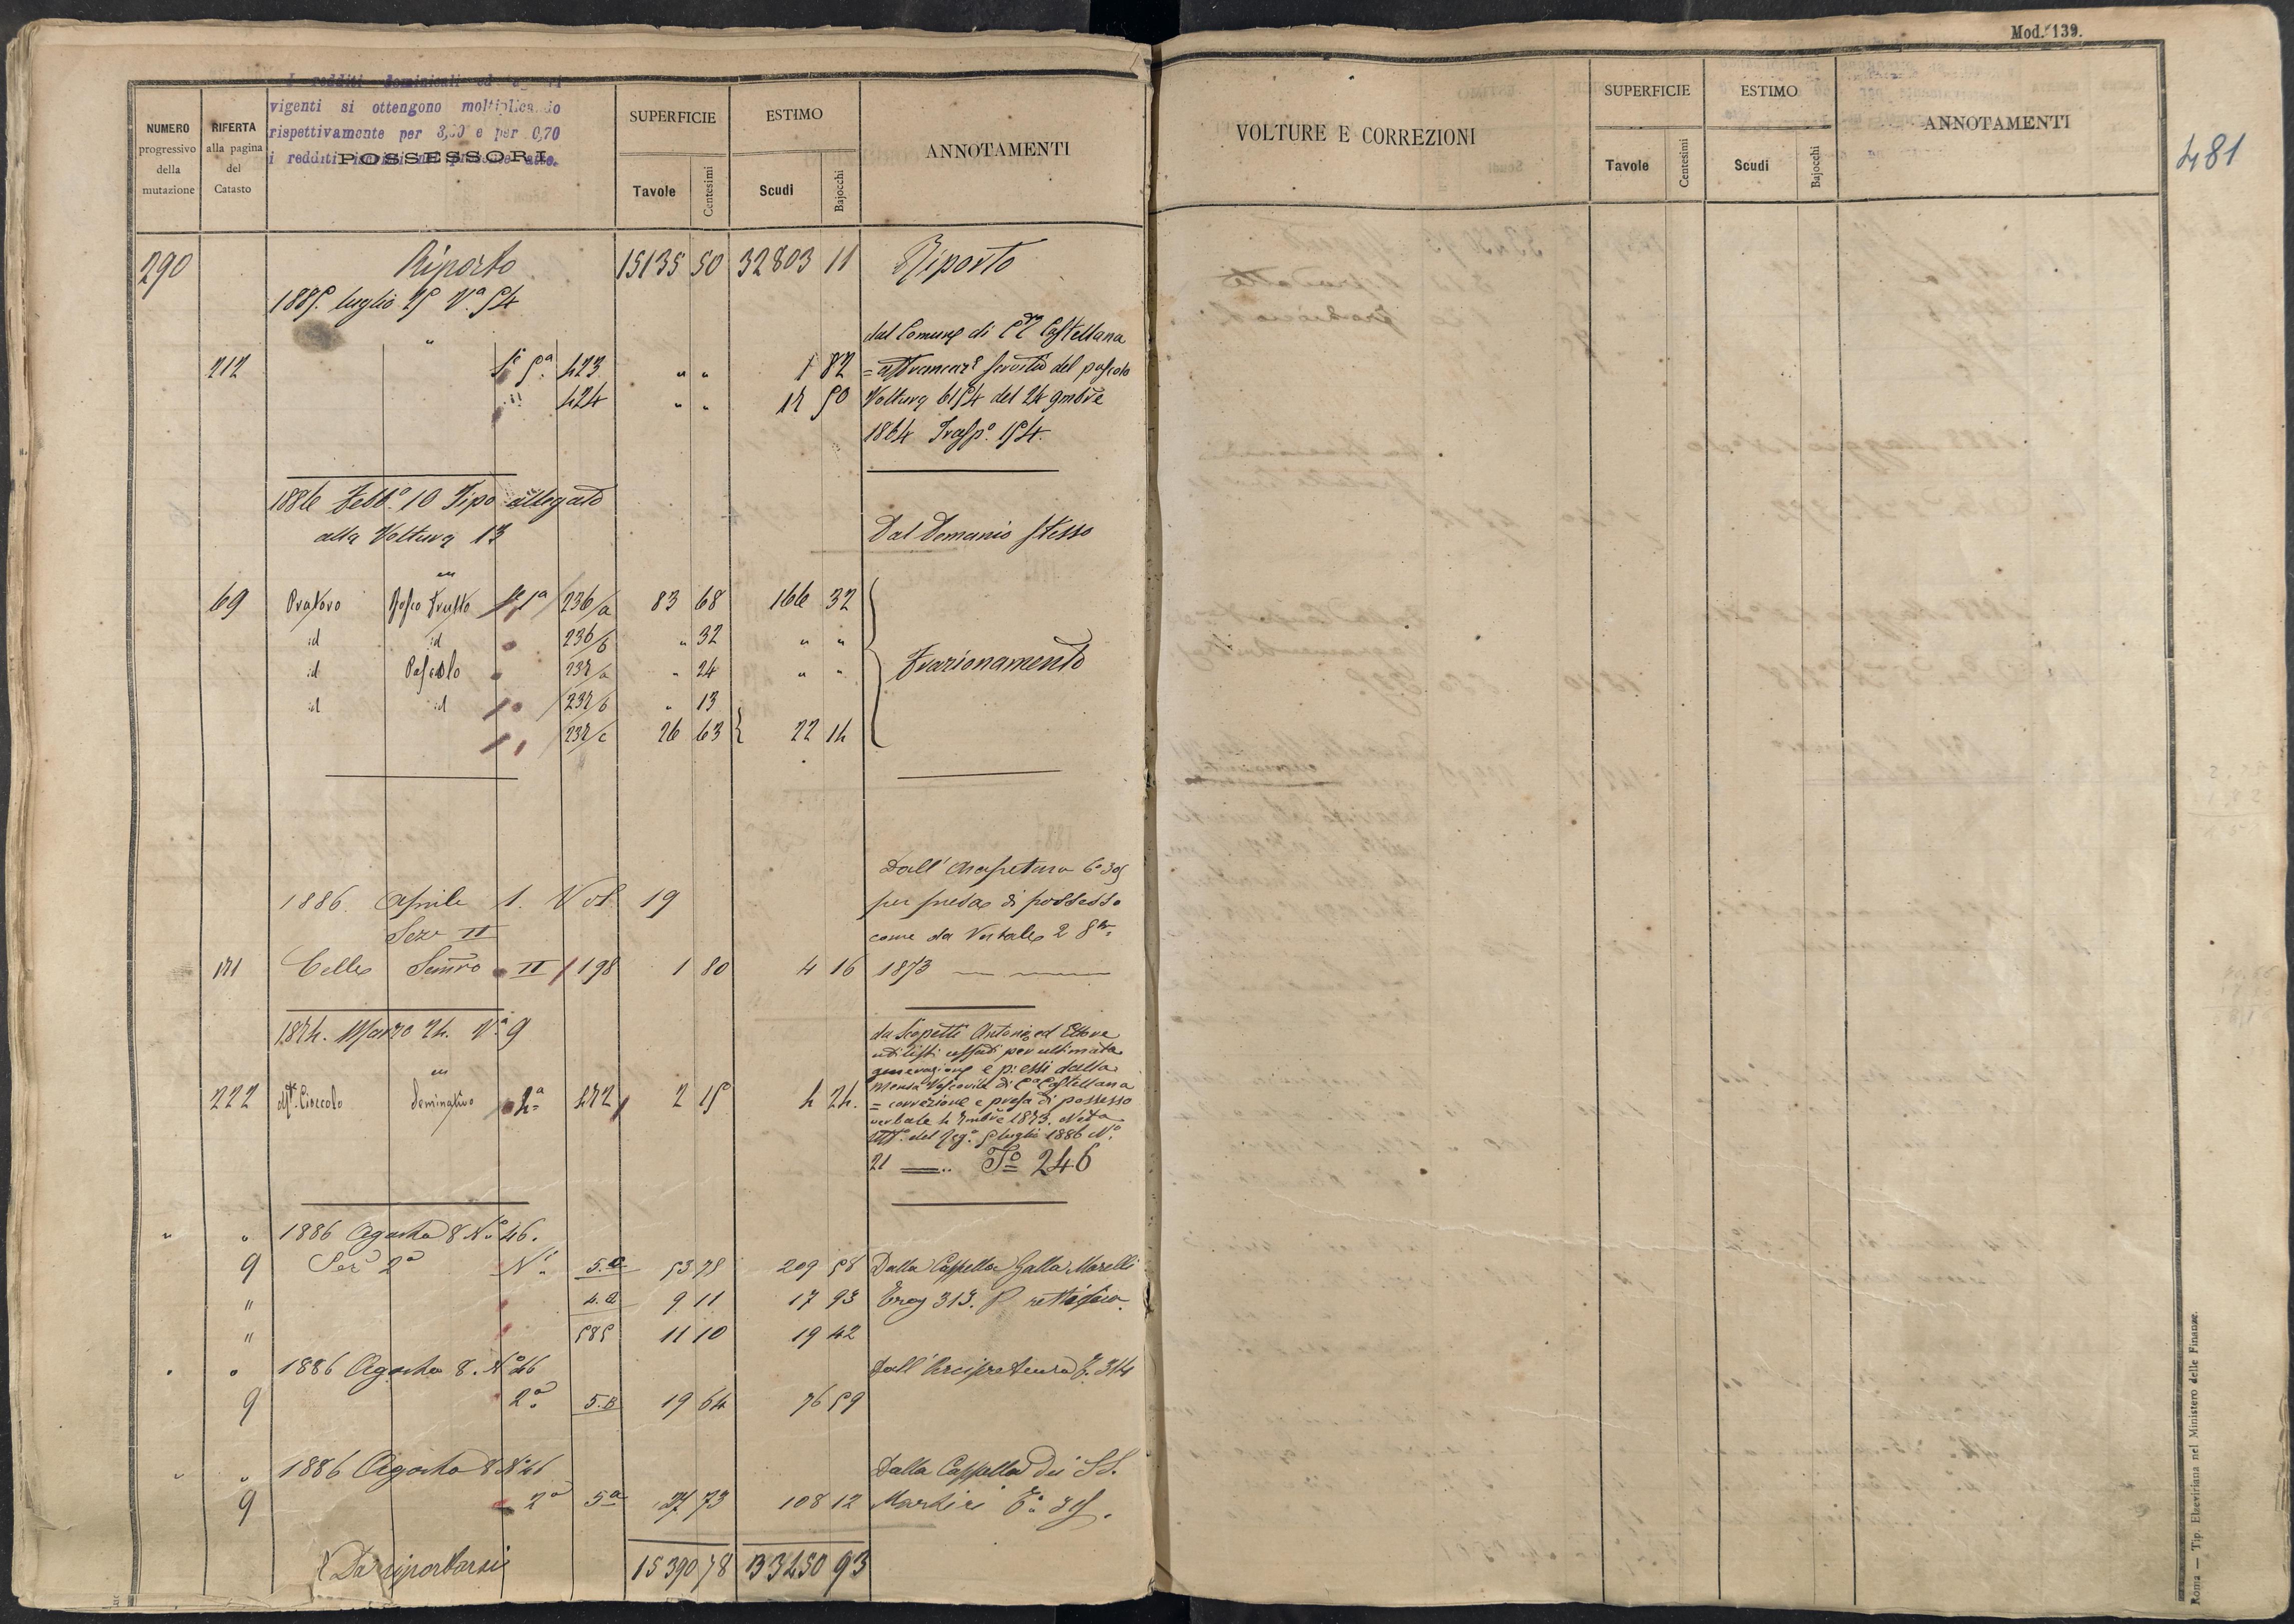 Mod. 139.
481
NUMERO progressivo della mutazione
RIFERTA alla pagina del Catasto
I redditi dominicali ed
vigenti si ottengono moltiplicando
rispettivamente per 3,00 e per 0,70
i redditi
POSSESSORI
SUPERFICIE
Tavole
Centesimi
ESTIMO
Scudi
Bajocchi
ANNOTAMENTI
VOLTURE E CORREZIONI
SUPERFICIE
Tavole
Centesimi
ESTIMO
Scudi
Bajocchi
ANNOTAMENTI
290 Riporto 15135 50 32803 11 Riporto
1885. luglio 25 Vª 54
dal Comune di Cª Castellana
212 Sᵉ 5ª 423 " " 1 82 = affrancazᵉ servitù del pascolo
" 424 " " 17 50 Voltura 6154 del 24 9mbre
1864 Trasp.º 154.
1886 Febb.º 10 Tipo allegato
alla Voltura 13
Dal Demanio stesso
69 Pratovo Bosco Frutto 1ª 236/a 83 68 166 32
id id " 236/b " 32 " "
id Pascolo " 237/a " 24 " "
id id " 237/b " 13
" 237/c 26 63 22 14
Frazionamento
1886. Aprile 1. Vol 19
Sezᵉ II
171 Celle Semvo II 198 1 80 4 16
Dall'Arcipretura
per presa di possesso
come da Verbale 2 8bre
1873
1874. Marzo 24. Vª 9
222 Seminativo 4ª 472 2 15 4 24.
da Scopetti Antonio ed Ettore
utilisti cessati per ultimata
generazione e p: essi dalla
Mensa Vescovile di Cª Castellana
= correzione e presa di possesso
verbale
del luglio 1886 Nº
21 Tº 246
" " 1886 Agosto 8 Nº 46.
9 Sezᵉ 2ª Nⁱ 5.a 53 75 209 58 Dalla Cappella Galla Marelli
" 4.a 9 11 17 93 313. P rettifica.
" 585 11 10 19 42
" " 1886 Agosto 8. Nº 46 Dall'Arcipretura T. 314
9 2ª 5.B 19 64 76 59
" " 1886 Agosto 8 Nº 46 Dalla Cappella dei SS.
9 2ª 5ª 27 73 108 12 Martiri Tº 315.
Da riportarsi 15390 78 33450 93
Roma — Tip. Elzeviriana nel Ministero delle Finanze.